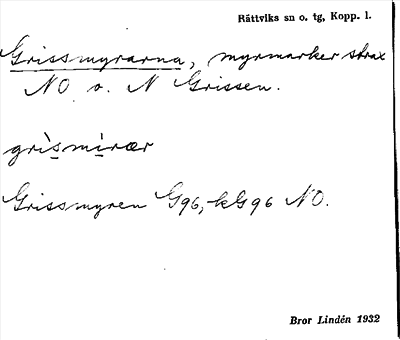 Rättviks sn o. tg, Kopp. l.
Grissmyrarna, myrmarker strax
NO o. N Grissen.
grìsmìrær
Grissmyren G96, kG96 NO.
Bror Lindén 1932